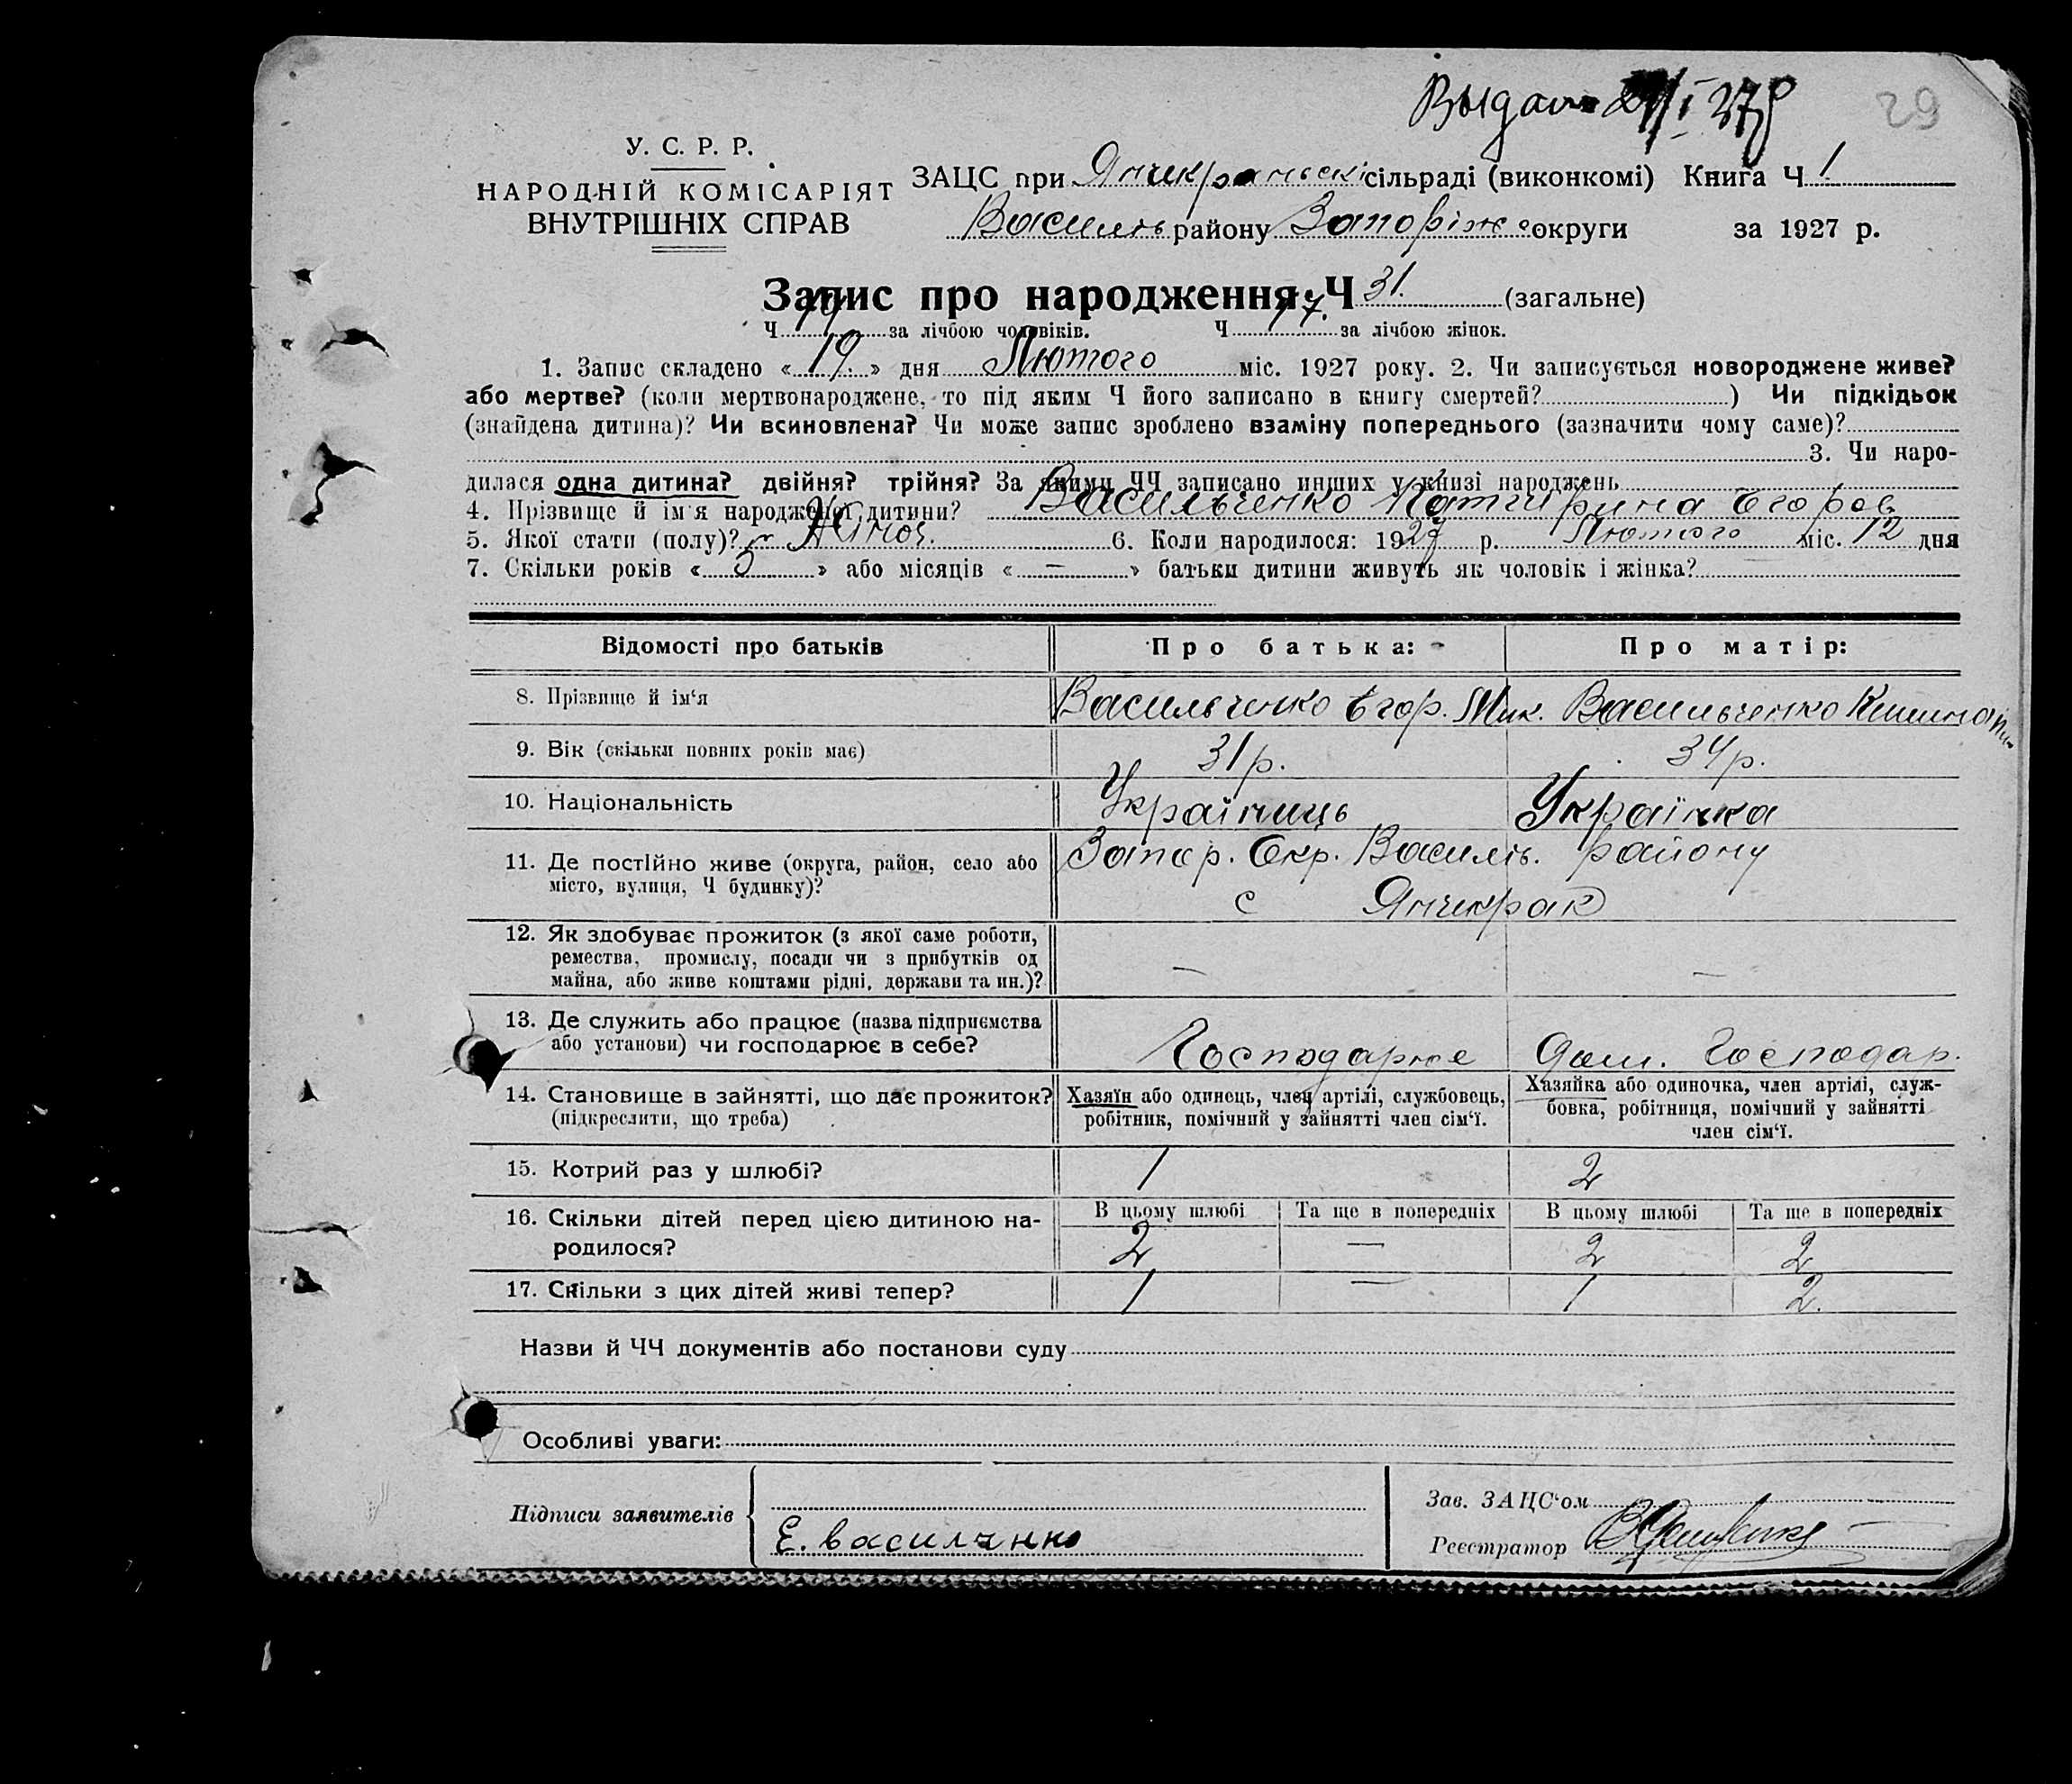 29
У. С. Р. Р.
НАРОДНІЙ КОМІСАРІЯТ
ВНУТРІШНІХ СПРАВ
ЗАЦС при Янчекраньскі сільраді (виконкомі) Книга Ч 1
Василів району Запоріж округи за 1927 р.
Запис про народження Ч 31. (загальне)
Ч 14 за лічбою чоловіків. Ч 17. за лічбою жінок.
1. Запис складено « 19. » дня Лютого міс. 1927 року. 2. Чи записується новороджене живе?
або мертве? (коли мертвонароджене, то під яким Ч його записано в книгу смертей? ) Чи підкідьок
(знайдена дитина)? Чи всиновлена? Чи може запис зроблено взаміну попереднього (зазначити чому саме)?
3. Чи наро-
дилася одна дитина? двійня? трійня? За якими ЧЧ записано инших у книзі народжень
4. Прізвище й ім'я народженої дитини? Васильченко Катирина Егоров
5. Якої стати (полу)? Жіноч. 6. Коли народилося: 1927 р. Лютого міс. 12 дня
7. Скільки років « 5 » або місяців « — » батьки дитини живуть як чоловік і жінка?
Відомості про батьків Про батька: Про матір:
8. Прізвище й ім'я Васильченко Егор. Мик. Васильченко
9. Вік (скільки повних років має) 31 р. 34 р.
10. Національність Українець Українка
11. Де постійно живе (округа, район, село або Запор. Окр. Василів. району
місто, вулиця, Ч будинку)? с Янчекрак
12. Як здобуває прожиток (з якої саме роботи, — —
ремества, промислу, посади чи з прибутків од
майна, або живе коштами рідні, держави та ин.)?
13. Де служить або працює (назва підприємства
або установи) чи господарює в себе? Господарює дом. Господар.
14. Становище в зайнятті, що дає прожиток? Хазяїн або одинець, член артілі, службовець, Хазяйка або одиночка, член артілі, служ-
(підкреслити, що треба) робітник, помічний у зайнятті член сім'ї. бовка, робітниця, помічний у зайнятті
член сім'ї.
15. Котрий раз у шлюбі? 1 2
16. Скільки дітей перед цією дитиною на- В цьому шлюбі Та ще в попередніх В цьому шлюбі Та ще в попередніх
родилося? 2 — 2 2
17. Скільки з цих дітей живі тепер? 1 — 1 2.
Назви й ЧЧ документів або постанови суду
Особливі уваги:
Підписи заявителів Е. василчнко
Зав. ЗАЦС'ом
Реєстратор